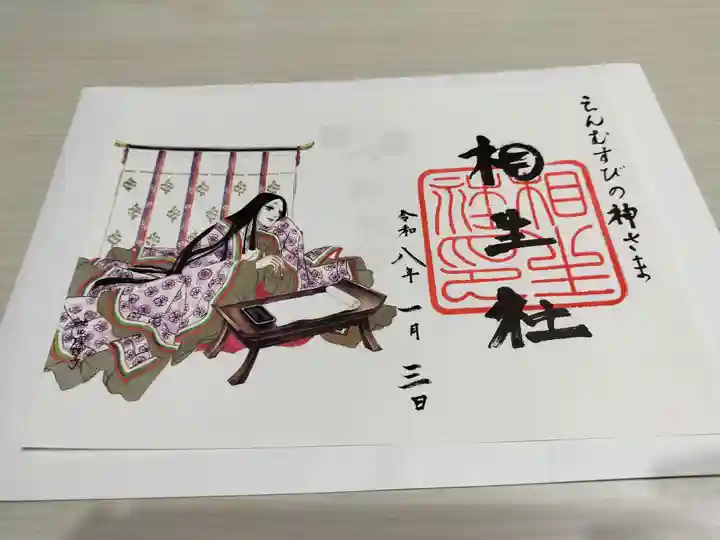 えんむすびの神さま
相生社
相生社印
令和八年一月三日